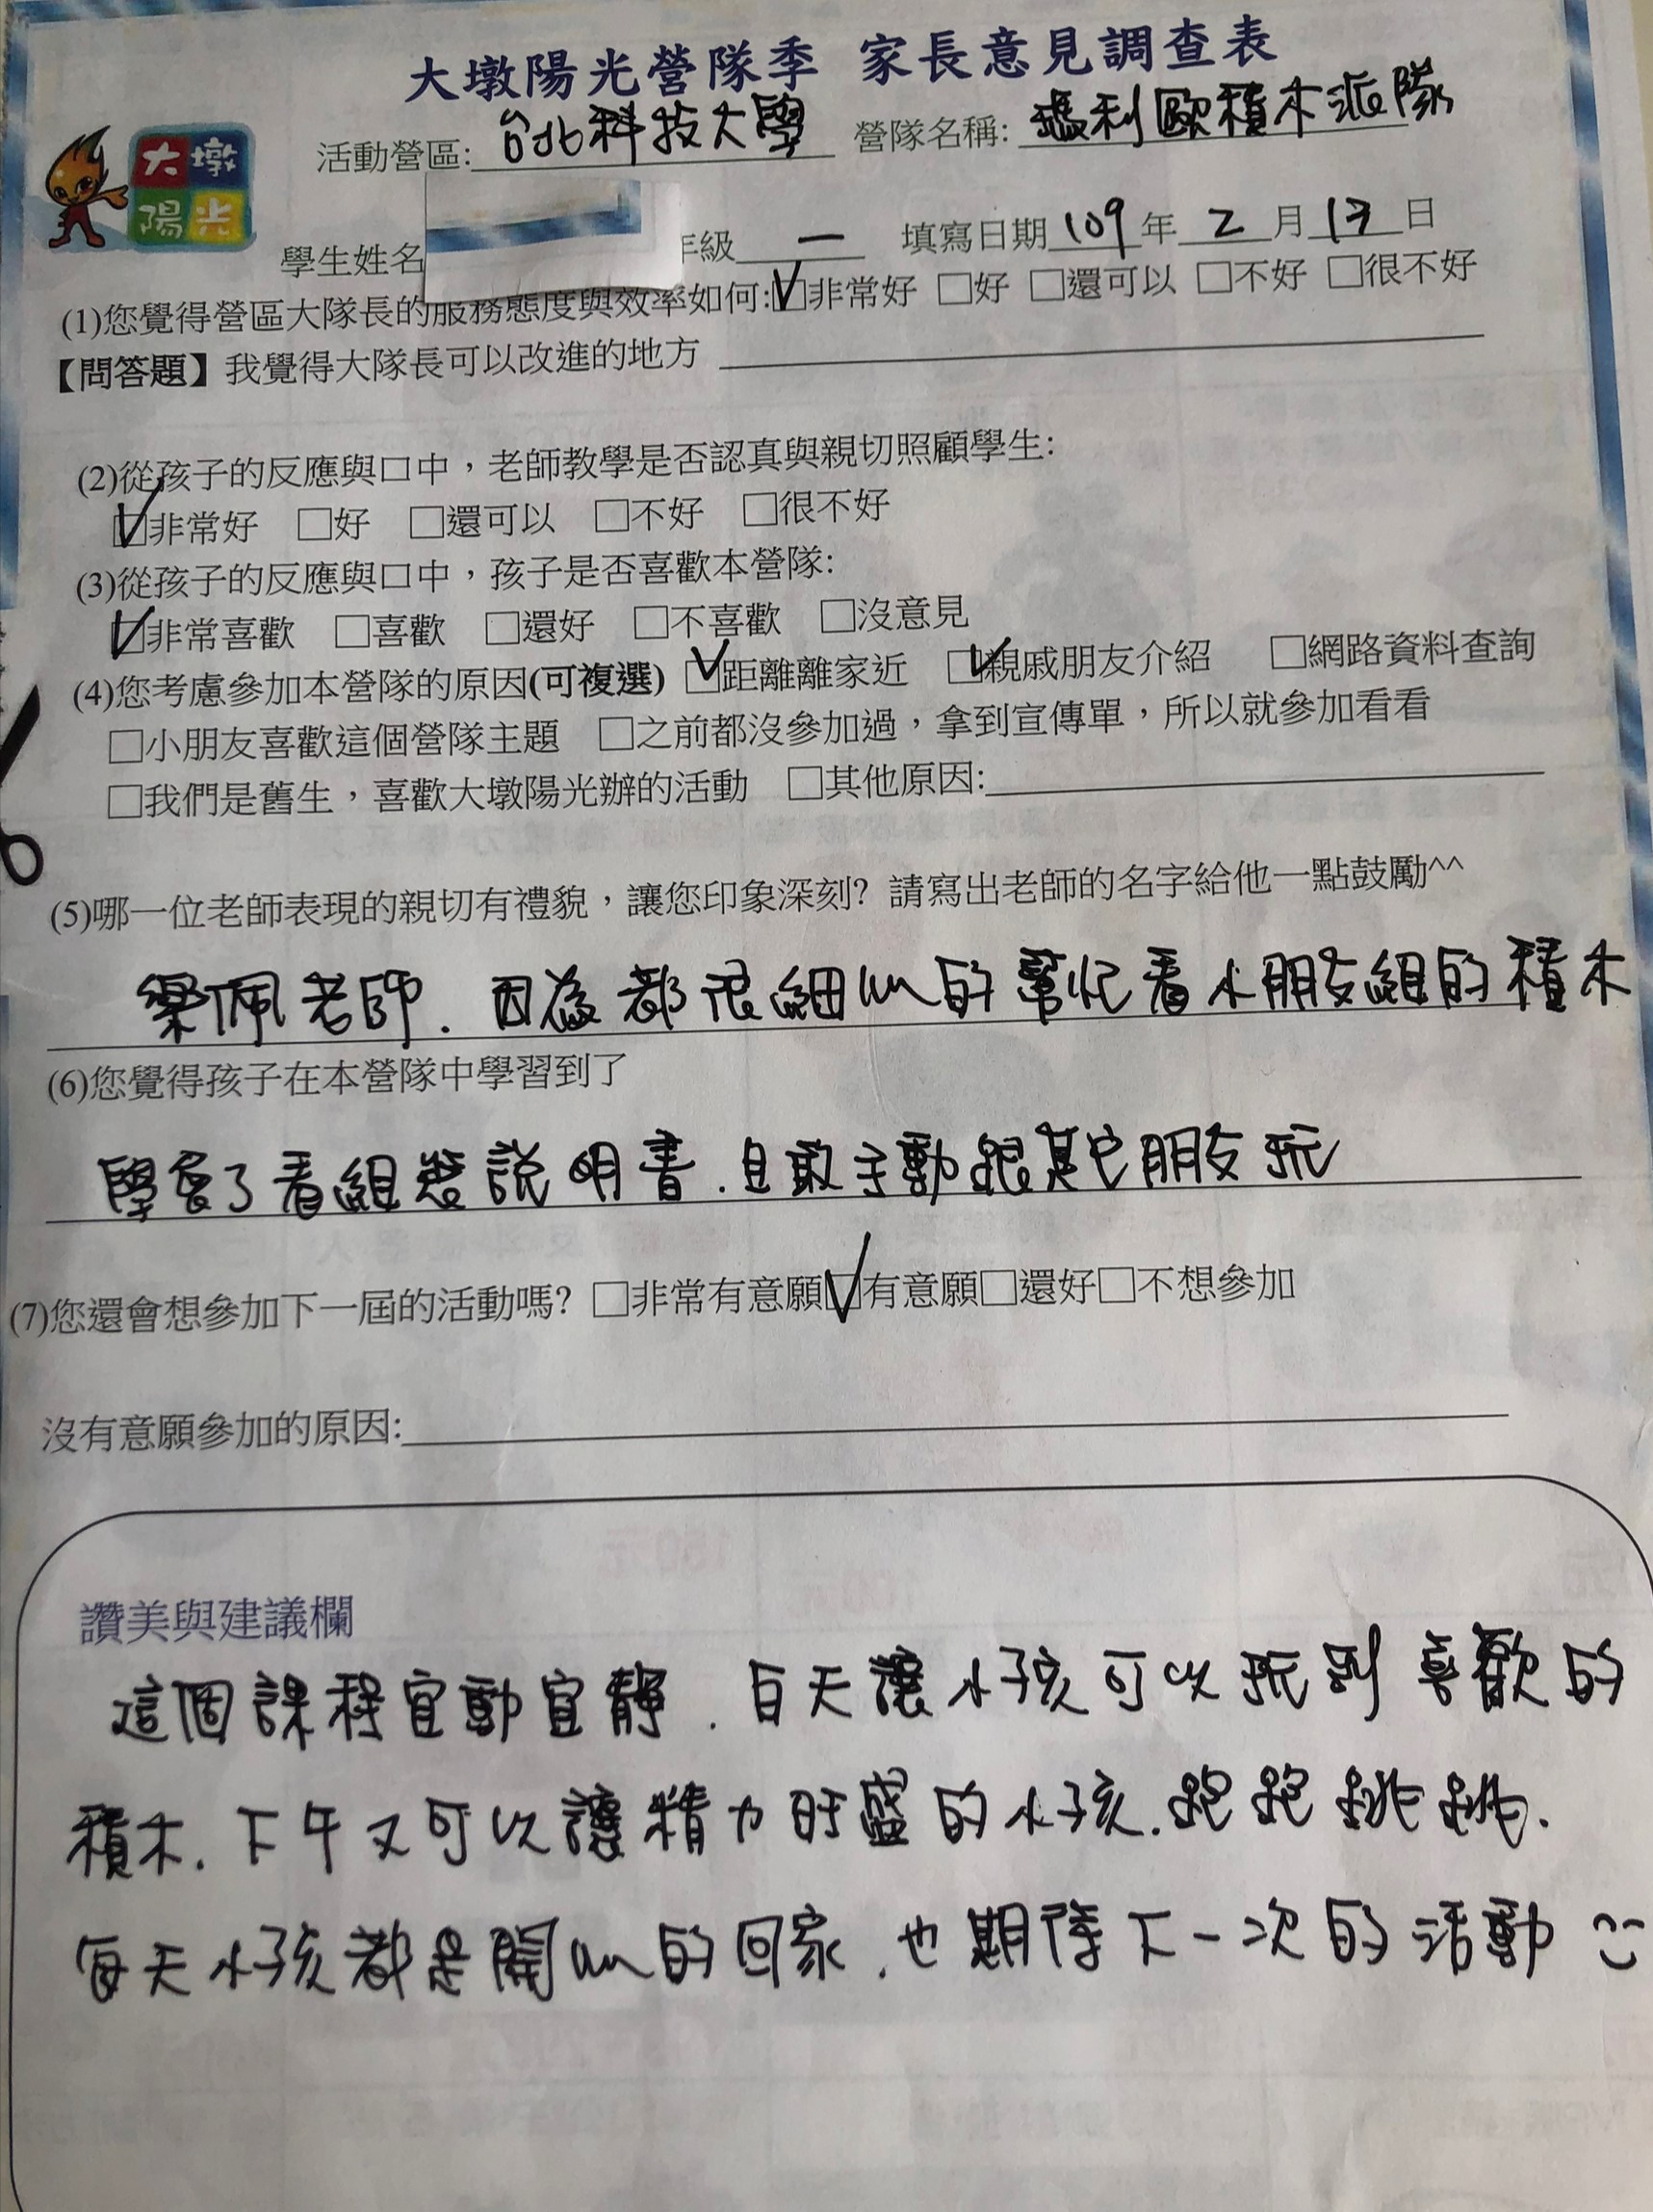 大墩陽光營隊季 家長意見調查表
大墩
陽光
活動營區: 台北科技大學 營隊名稱: 瑪利歐積木派隊
學生姓名 年級 一 填寫日期 109 年 2 月 17 日
(1)您覺得營區大隊長的服務態度與效率如何:☑非常好 □好 □還可以 □不好 □很不好
【問答題】我覺得大隊長可以改進的地方
(2)從孩子的反應與口中，老師教學是否認真與親切照顧學生:
☑非常好 □好 □還可以 □不好 □很不好
(3)從孩子的反應與口中，孩子是否喜歡本營隊:
☑非常喜歡 □喜歡 □還好 □不喜歡 □沒意見
(4)您考慮參加本營隊的原因(可複選) ☑距離離家近 ☑親戚朋友介紹 □網路資料查詢
□小朋友喜歡這個營隊主題 □之前都沒參加過，拿到宣傳單，所以就參加看看
□我們是舊生，喜歡大墩陽光辦的活動 □其他原因:
(5)哪一位老師表現的親切有禮貌，讓您印象深刻? 請寫出老師的名字給他一點鼓勵^^
佩老師. 因為都很細心的幫忙看小朋友組的積木
(6)您覺得孩子在本營隊中學習到了
學會了看組裝說明書. 且敢主動跟其它朋友玩
(7)您還會想參加下一屆的活動嗎? □非常有意願☑有意願□還好□不想參加
沒有意願參加的原因:
讚美與建議欄
這個課程宜動宜靜. 白天讓小孩可以玩到喜歡的
積木. 下午又可以讓精力旺盛的小孩. 跑跑跳跳.
每天小孩都是開心的回家. 也期待下一次的活動